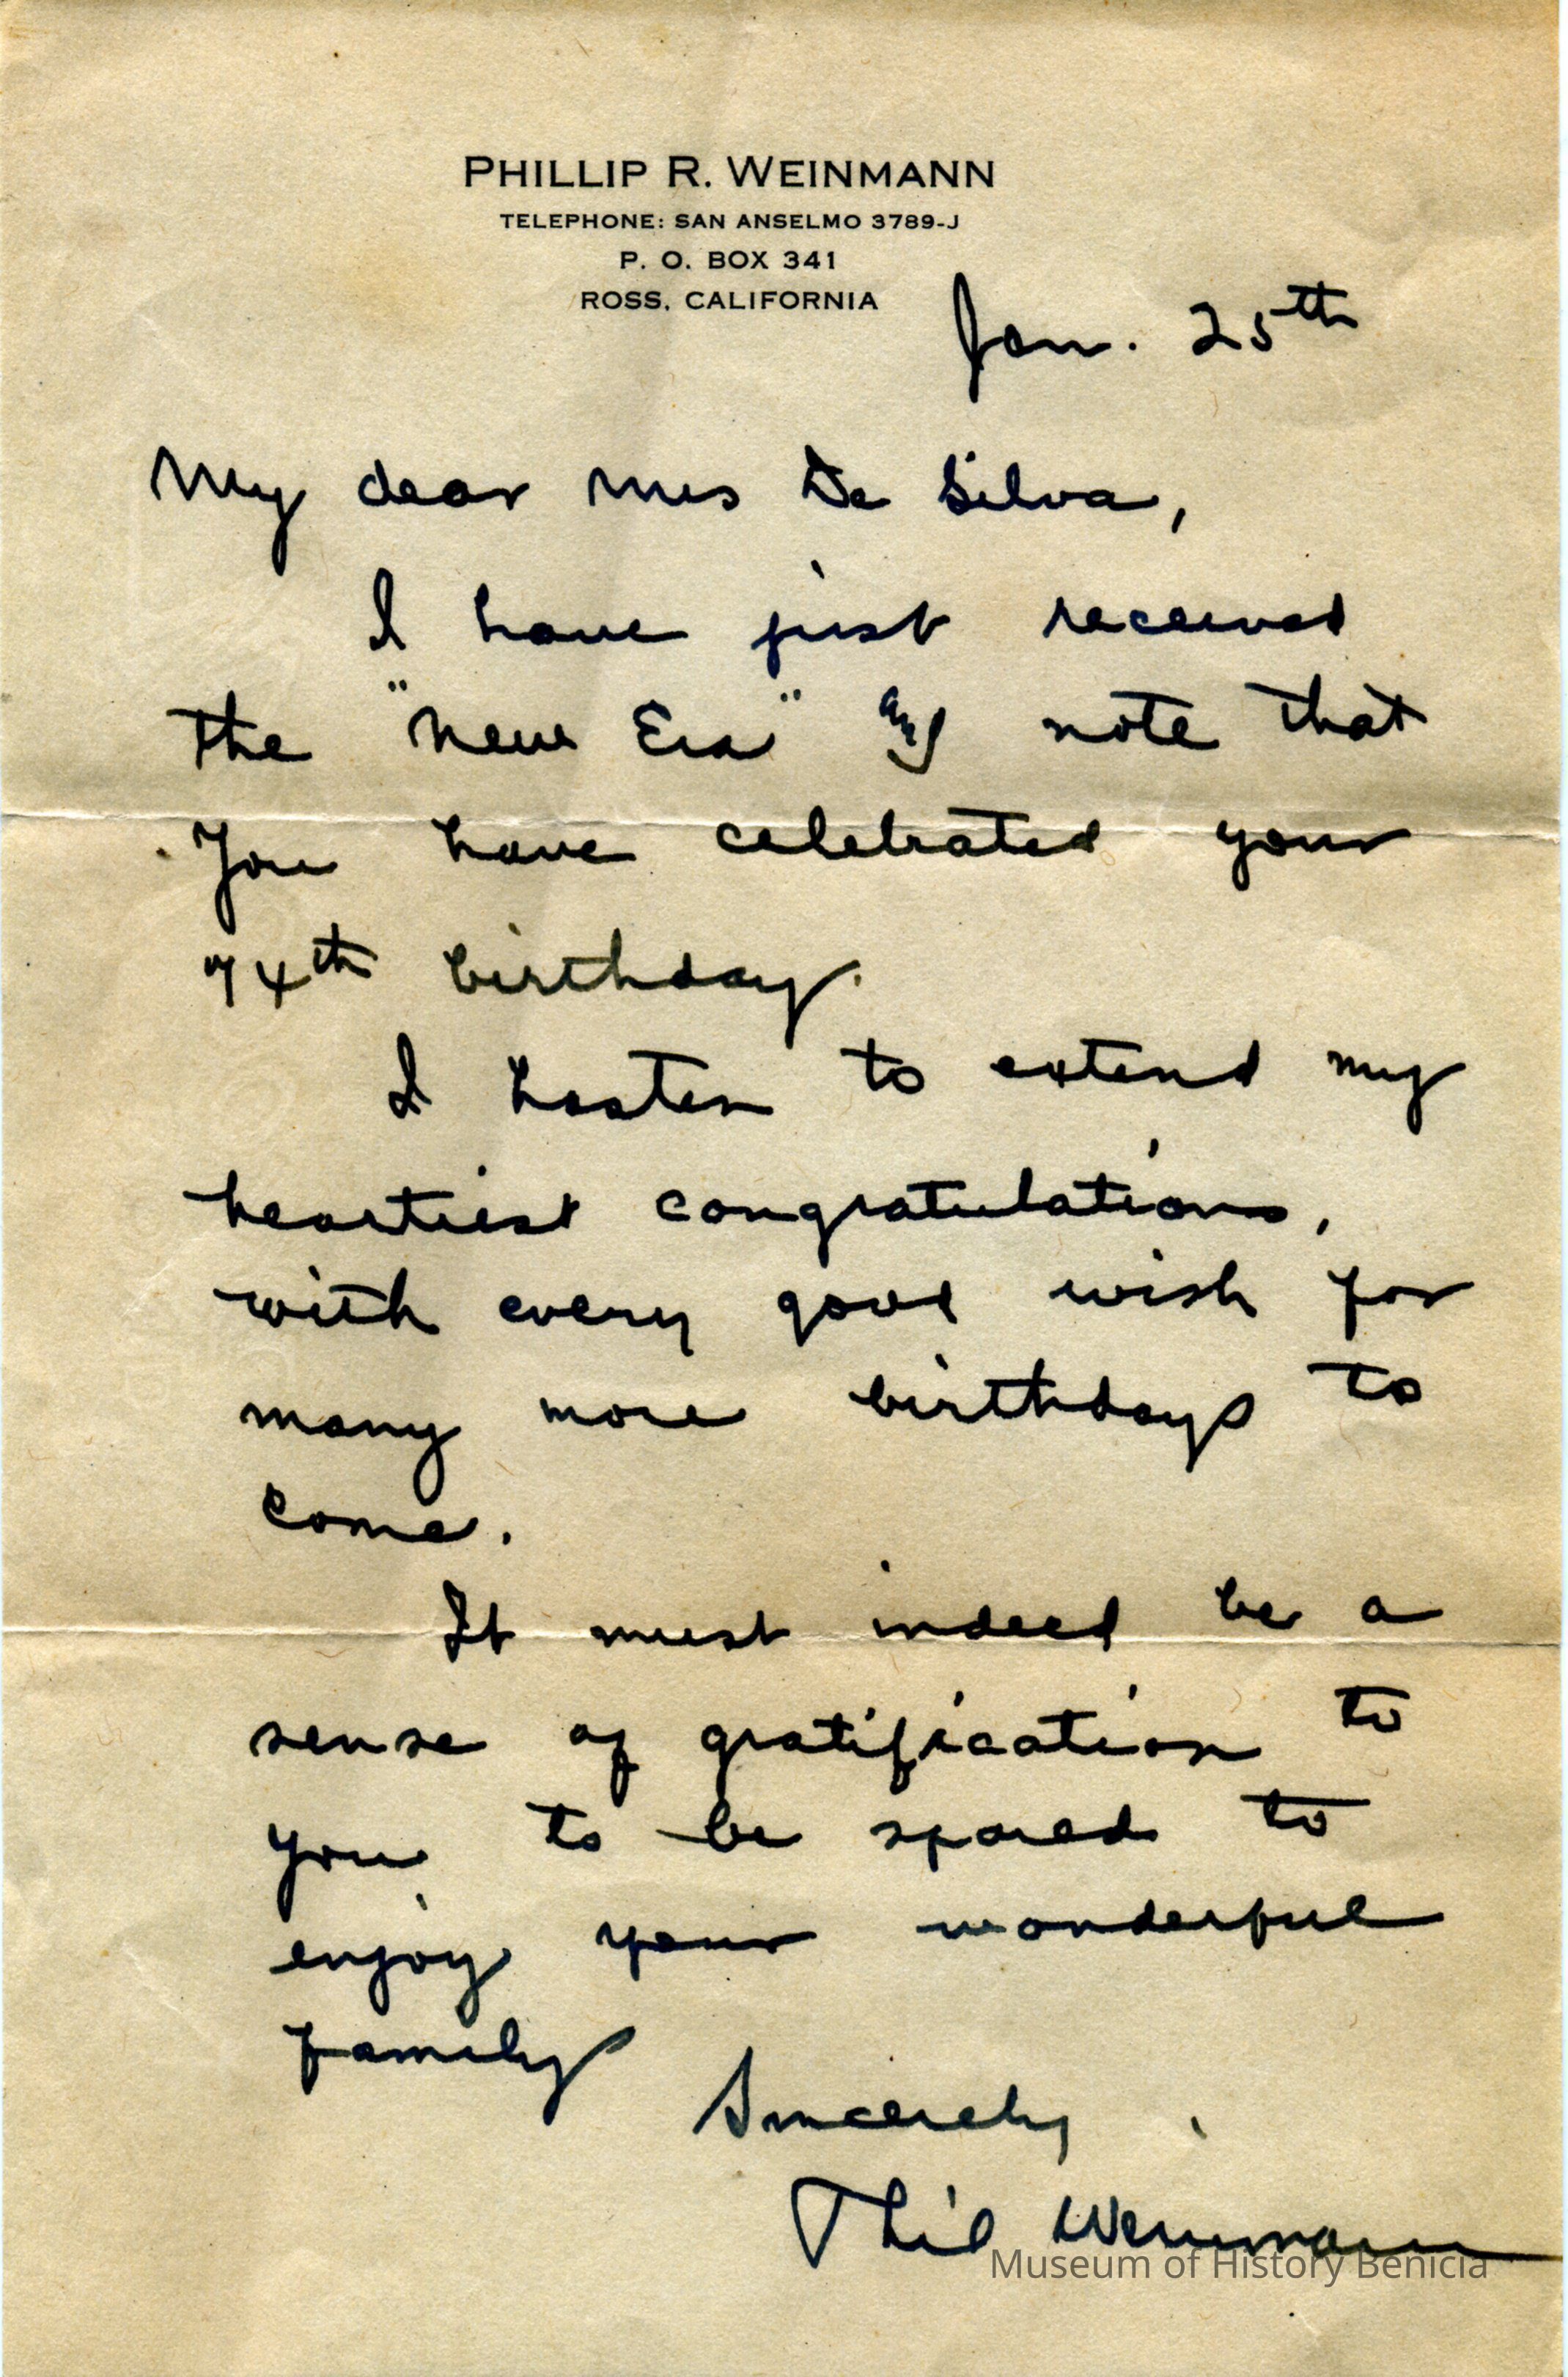 PHILLIP R. WEINMANN
TELEPHONE: SAN ANSELMO 3789-J
P. O. BOX 341
ROSS, CALIFORNIA
Jan. 25th
My dear Mrs De Silva,
I have just received
the "New Era" and note that
you have celebrated your
74th birthday.
I hasten to extend my
heartiest congratulations,
with every good wish for
many more birthdays to
come.
It must indeed be a
sense of gratification to
you to be spared to
enjoy your wonderful
family
Sincerely
Phil Weinmann
Museum of History Benicia